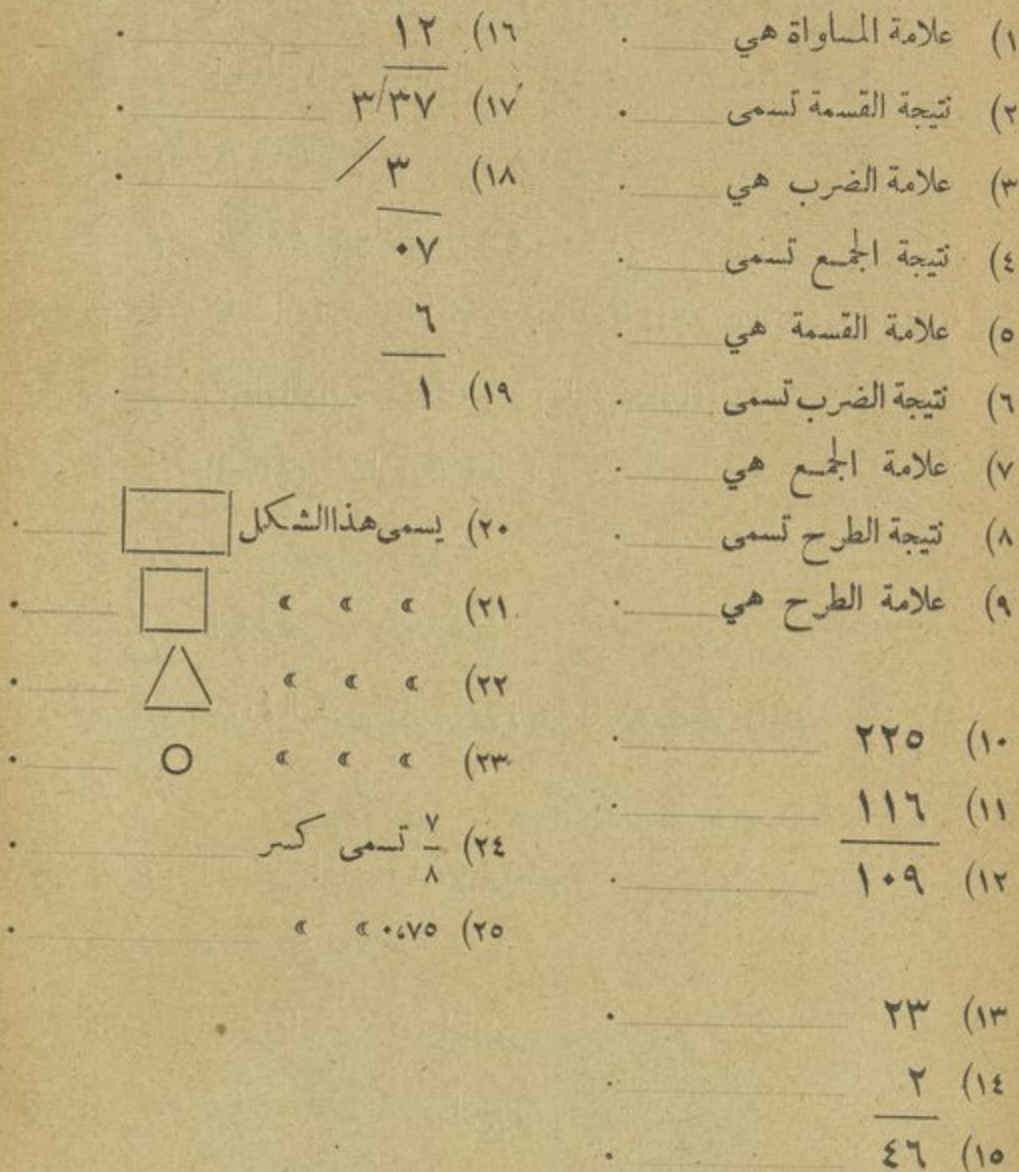 ١) علامة المساواة هي ______ .
٢) نتيجة القسمة تسمى ______ .
٣) علامة الضرب هي ______ .
٤) نتيجة الجمع تسمى ______ .
٥) علامة القسمة هي ______ .
٦) نتيجة الضرب تسمى ______ .
٧) علامة الجمع هي ______ .
٨) نتيجة الطرح تسمى ______ .
٩) علامة الطرح هي ______ .
١٠) ٢٢٥ ______ .
١١) ١١٦ ______ .
١٢) ١٠٩ ______ .
١٣) ٢٣ ______ .
١٤) ٢ ______ .
١٥) ٤٦ ______ .
١٦) ١٢ ______ .
١٧) ٣/٣٧ ______ .
١٨) ٣ / ______ .
٠٧
٦
١٩) ١ ______ .
٢٠) يسمى هذا الشكل ______ .
٢١) » » » ______ .
٢٢) » » » ______ .
٢٣) » » » ______ .
٢٤) ٧/٨ تسمى كسر ______ .
٢٥) ٠،٧٥ » » ______ .